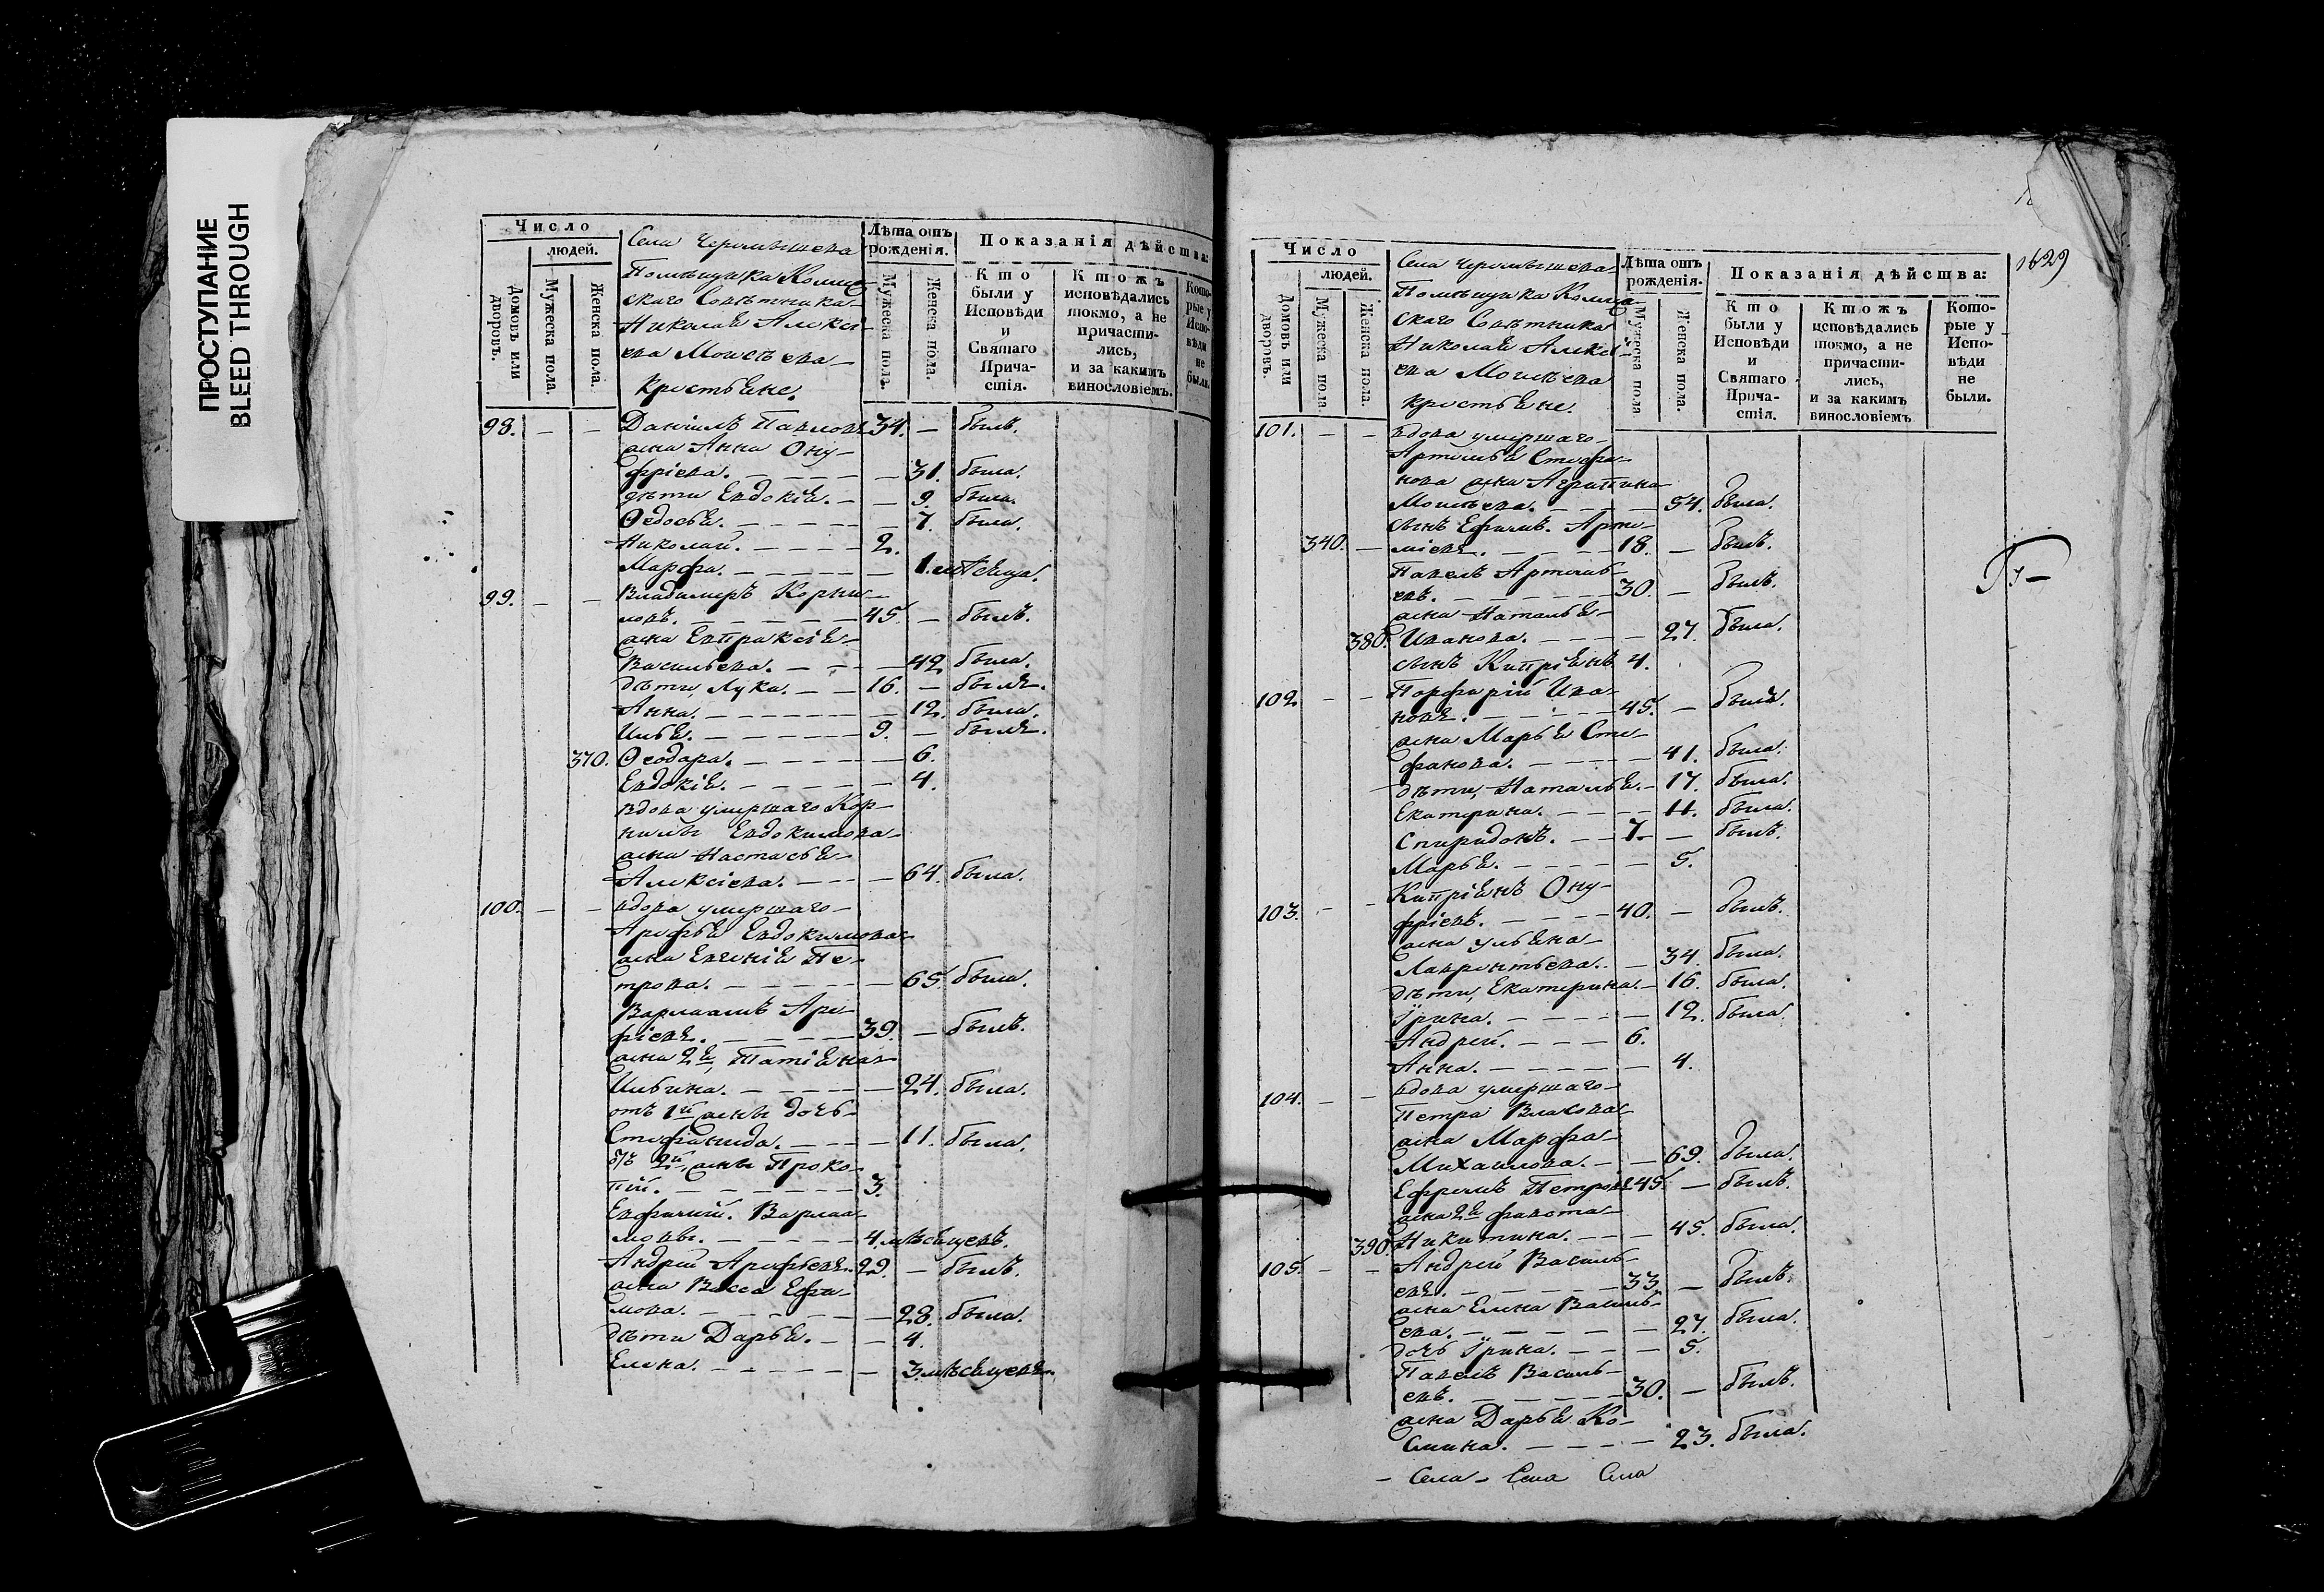 ПРОСТУПАНИЕ
BLEED THROUGH
Число
людей.
Домовъ или дворовъ.
Мужеска пола.
Женска пола.
Села Черемышева
Помѣщика Коллеж
скаго Совѣтника
Николая Алексѣ
ева Моисѣева
крестьяне.
Лѣта отъ рожденія.
Мужеска пола.
Женска пола.
Показанія дѣйства:
Кто были у Исповѣди и Святаго Прича-стія.
Ктожъ исповѣдались токмо, а не причасти-лись, и за какимъ винословіемъ.
Кото-рые у Испо-вѣди не были.
98. — — Даніилъ Павловъ 34. — былъ.
жена Анна Ону-
фріева. — 31. была.
дѣти Евдокія. — 9. была.
Ѳедосья. — 7. была.
Николай. — 2.
Марфа. — 1. мѣсяца.
99. — — Владимеръ Корни-
ловъ. — 45. — былъ.
жена Евпраксія
Васильева. — 42 была.
дѣти, Лука. — 16. — былъ.
Анна. — 12. была.
Илья. — 9. — былъ.
370. Ѳеодора. — 6.
Евдокія. — 4.
вдова умершаго Кор-
нилы Евдокимова
жена Настасья
Алексіева. — 64. была.
100. — — вдова умершаго
Арефья Евдокимова
жена Евгенія Пе-
трова. — 65. была.
Варлаамъ Аре-
фіевъ. — 39. — былъ.
жена 2я, Татіяна
Ильина. — 24. была.
отъ 1й жены дочь
Стефанида. — 11. была.
отъ 2й жены Проко-
пій. — 3.
Евфимій. Варлаа-
мовъ. — 4. мѣсяцевъ.
Андрей Арефьевъ. 29. — былъ.
жена Васса Ефи-
мова. — 28. была.
дѣти Дарья. — 4.
Елена. — 3. мѣсяцевъ.
1629
Число
людей.
Домовъ или дворовъ.
Мужеска пола.
Женска пола.
Села Черемышева
Помѣщика Коллеж
скаго Совѣтника
Николая Алексѣ
ева Моисѣева
крестьяне.
Лѣта отъ рожденія.
Мужеска пола
Женска пола.
Показанія дѣйства:
Кто были у Исповѣди и Святаго Прича-стія.
Ктожъ исповѣдались токмо, а не причасти-лись, и за какимъ винословіемъ
Кото-рые у Испо-вѣди не были.
101. — — вдова умершаго
Артемья Стефа-
нова жена Агрипина
Моисѣева. — 54. была.
сынъ Ефимъ. Арте-
340. — міевъ. — 18. — былъ.
Павелъ Артемь-
евъ. — 30. — былъ.
жена Наталья
380. Иванова. — 27. была.
сынъ Кипріянъ 4.
102 — — Порфирій Ива-
новъ. — 45. — былъ.
жена Марья Сте-
фанова. — 41. была.
дѣти, Наталья. — 17. была.
Екатерина. — 11. была.
Спиридонъ. — 7. — былъ.
Марья. — 5.
103. — — Кипріянъ Ону-
фріевъ. — 40. — былъ.
жена Ульяна
Лаврентьева. — 34. была.
дѣти, Екатерина. — 16. была.
Ірина. — 12. была
Андрей. — 6.
Анна. — 4.
104. — — вдова умершаго
Петра Власова
жена Марфа
Михаилова. — 69. была.
Ефремъ Петровъ 45. — былъ.
жена 2я
390. Никитина. — 45. была.
105. — — Андрей Василь-
евъ. — 33. — былъ.
жена Елена Василь-
ева. — 27. была.
дочь Ірина. — 5.
Павелъ Василь-
евъ. — 30. — былъ.
жена Дарья Ко-
смина. — 23. была.
— Села — Села Села